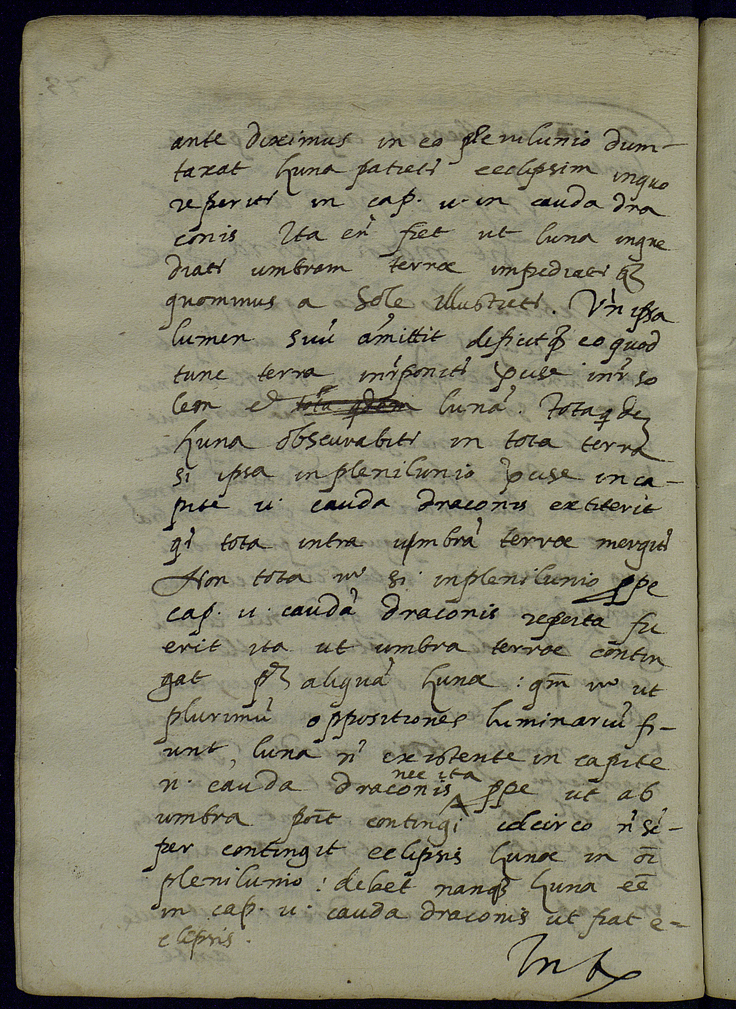 ante diximus in eo plenilunio dum-
taxat Luna patiet(r) ecclipsim inquo
reperit(r) in cap. u. in cauda dra
conis Ita en(im) fiet ut luna ingre
diat(r) umbram terrae impediat(r)
quominus a Sole illustret(r). Vn(de) ipsa
lumen suu' amittit deficitq(ue) eo quod
tunc terra interponit(r) inter so
lem et luna'. Tota q(ui)de(m)
Luna obscurabit(r) in tota terra
si ipsa inplenilunio in ca-
pite u. cauda draconis extiterit
tota intra umbra' terrae mergit(r)
Non tota u(er)o si inplenilunio ppe
cap. u. cauda' draconis reperta fu
erit ita ut umbra terrae contin
gat aliqua' Lunae : u(er)o ut
plurimu' oppositiones luminariu' fi-
unt, luna n' existente in capite
n. cauda draconis nec ita ppe ut ab
umbra contingi idcirco n' se'-
per contingit eclipsis Lunae in
plenilunio : debet nanq(ue) Luna ee
in cap. u. cauda draconis ut fiat e-
clipsis.